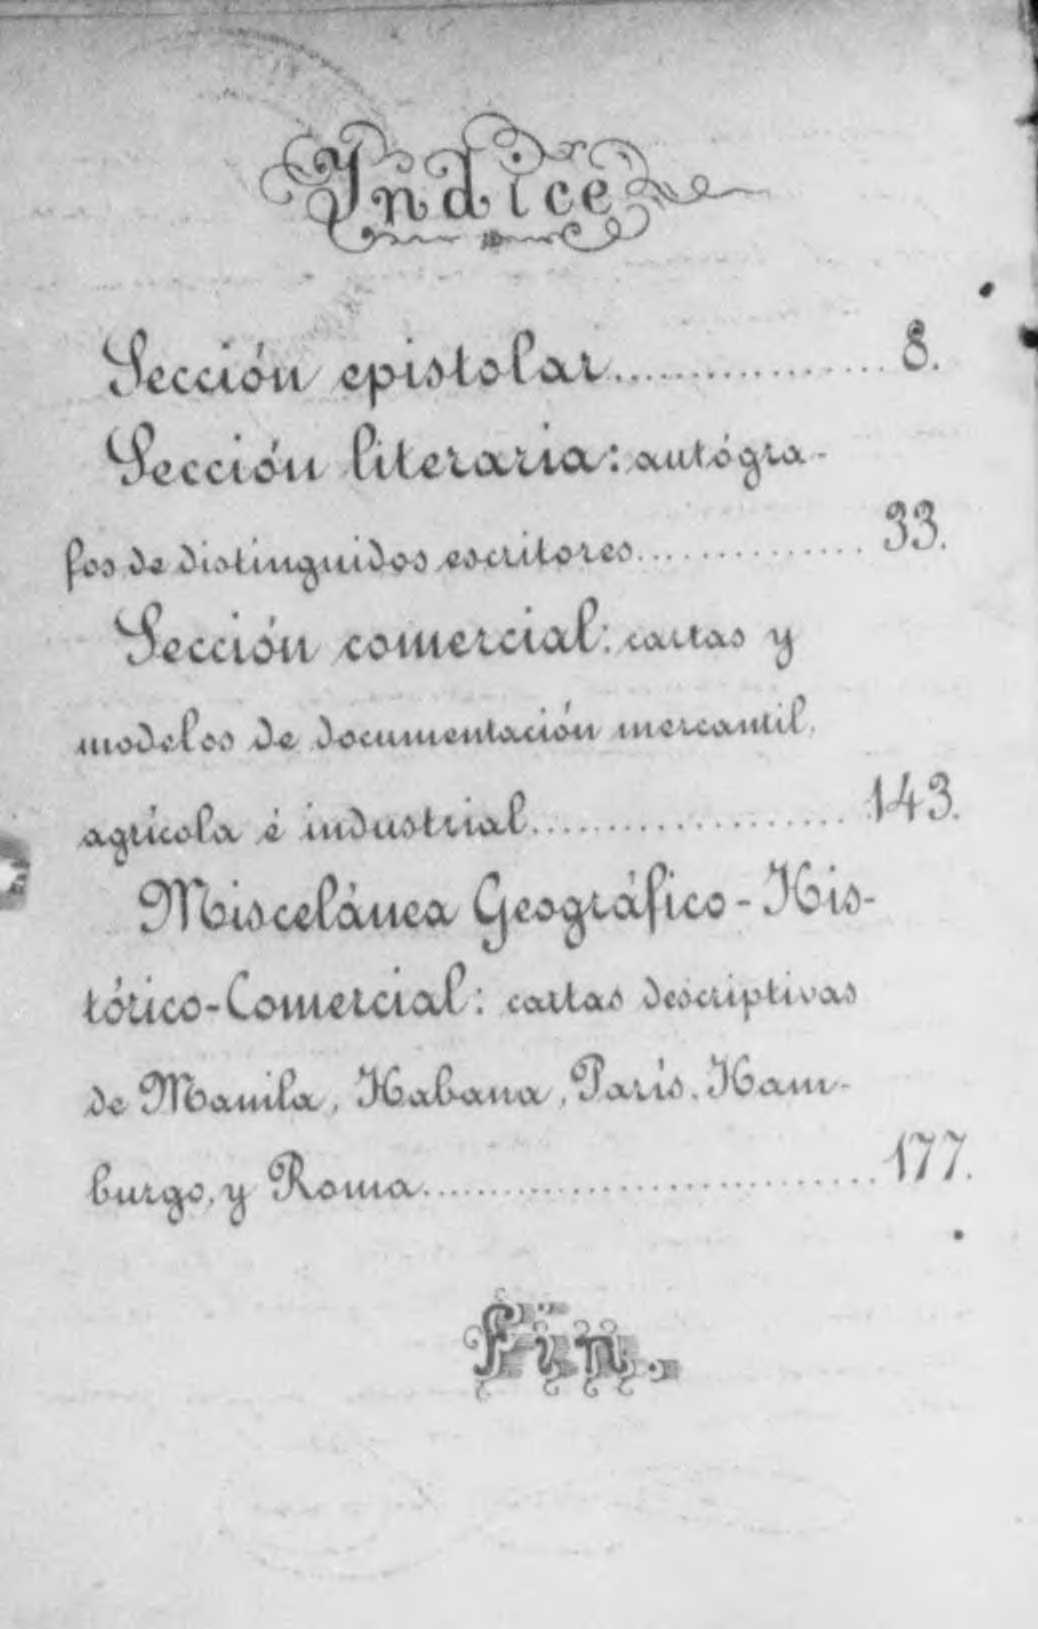 Indice
Sección epistolar.................. 8.
Sección literaria: autógra-
fos de distinguidos escritores............... 33.
Sección comercial: cartas y
modelos de documentación mercantil,
agrícola é industrial..................... 143.
Miscelánea Geográfico-His-
tórico-Comercial: cartas descriptivas
de Manila, Habana, París, Ham-
burgo, y Roma................................. 177.
Fin.